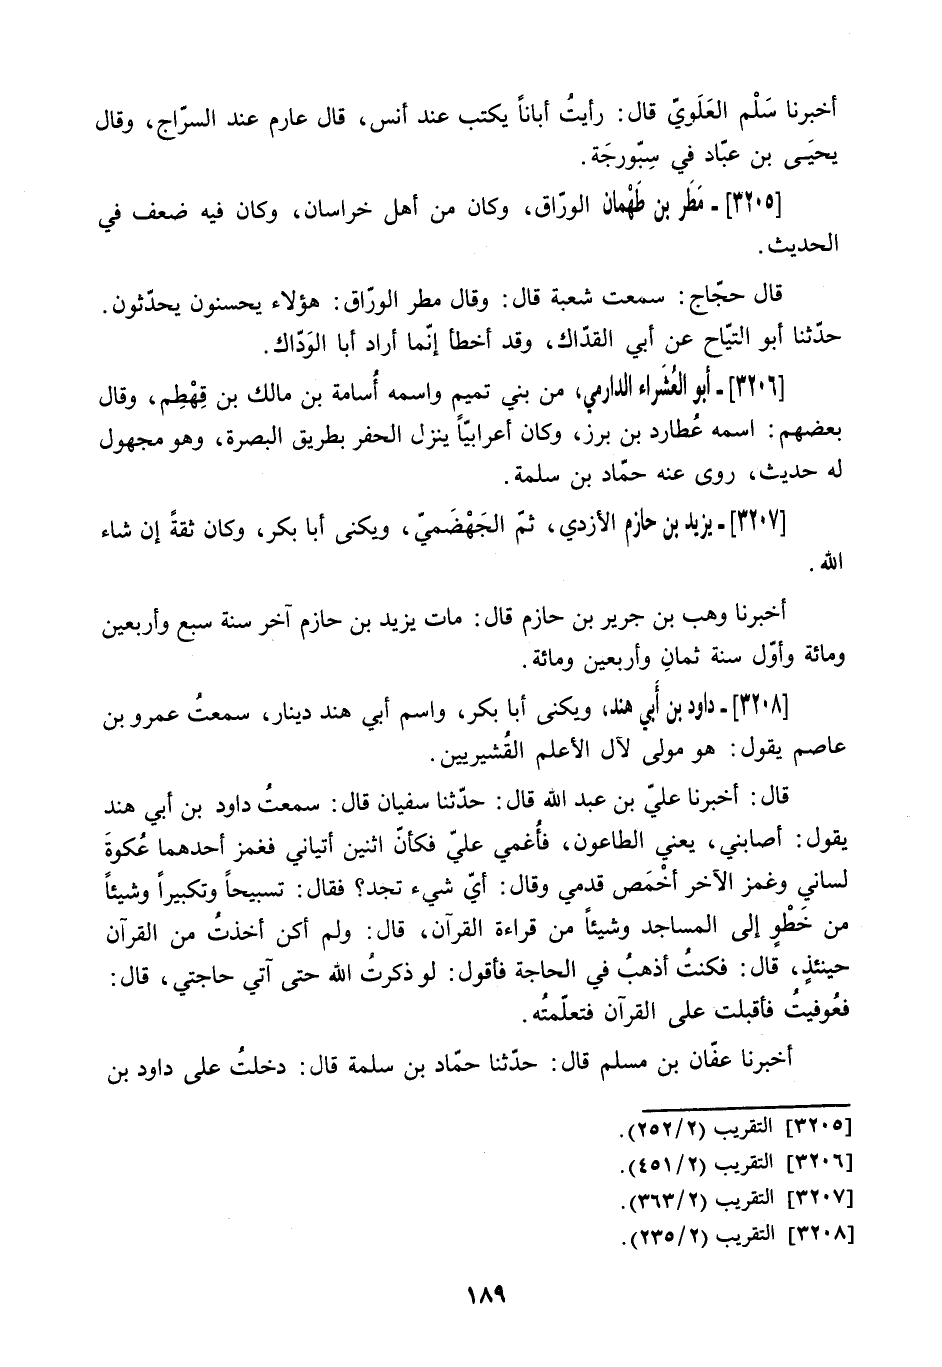 أخبرنا سَلْم العَلَويّ قال: رأيتُ أباناً يكتب عند أنس، قال عارم عند السرّاج، وقال
يحيَى بن عبّاد في سِبّورجَة.
[٣٢٠٥] ـ مَطَر بن طَهْمان الورّاق، وكان من أهل خراسان، وكان فيه ضعف في
الحديث.
قال حجّاج: سمعت شعبة قال: وقال مطر الورّاق: هؤلاء يحسنون يحدّثون.
حدّثنا أبو التيّاح عن أبي القدّاك، وقد أخطأ إنّما أراد أبا الوَدّاك.
[٣٢٠٦] ـ أبو العُشَراء الدارمي، من بني تميم واسمه أُسامة بن مالك بن قِهْطِم، وقال
بعضهم: اسمه عُطارد بن برز، وكان أعرابيّاً ينزل الحفر بطريق البصرة، وهو مجهول
له حديث، روى عنه حمّاد بن سلمة.
[٣٢٠٧] ـ يزيد بن حازم الأزدي، ثمّ الجَهْضَميّ، ويكنى أبا بكر، وكان ثقةً إن شاء
الله.
أخبرنا وهب بن جرير بن حازم قال: مات يزيد بن حازم آخر سنة سبع وأربعين
ومائة وأوّل سنة ثمانِ وأربعين ومائة.
[٣٢٠٨] ـ داود بن أَبي هند، ويكنى أبا بكر، واسم أبي هند دينار، سمعتُ عمرو بن
عاصم يقول: هو مولى لآل الأعلم القُشيريين.
قال: أخبرنا عليّ بن عبد الله قال: حدّثنا سفيان قال: سمعتُ داود بن أبي هند
يقول: أصابني، يعني الطاعون، فأُغمي عليّ فكأنّ اثنين أتياني فغمز أحدهما عُكوةَ
لساني وغمز الآخر أخْمَص قدمي وقال: أيّ شيء تجد؟ فقال: تسبيحاً وتكبيراً وشيئاً
من خَطْوٍ إلى المساجد وشيئاً من قراءة القرآن، قال: ولم أكن أخذتُ من القرآن
حينئذٍ، قال: فكنتُ أذهبُ في الحاجة فأقول: لو ذكرتُ الله حتى آتي حاجتي، قال:
فعُوفيتُ فأقبلت على القرآن فتعلّمتُه.
أخبرنا عفّان بن مسلم قال: حدّثنا حمّاد بن سلمة قال: دخلتُ على داود بن
[٣٢٠٥] التقريب (٢/٢٥٢).
[٣٢٠٦] التقريب (٢/٤٥١).
[٣٢٠٧] التقريب (٢/٣٦٣).
[٣٢٠٨] التقريب (٢/٢٣٥).
١٨٩